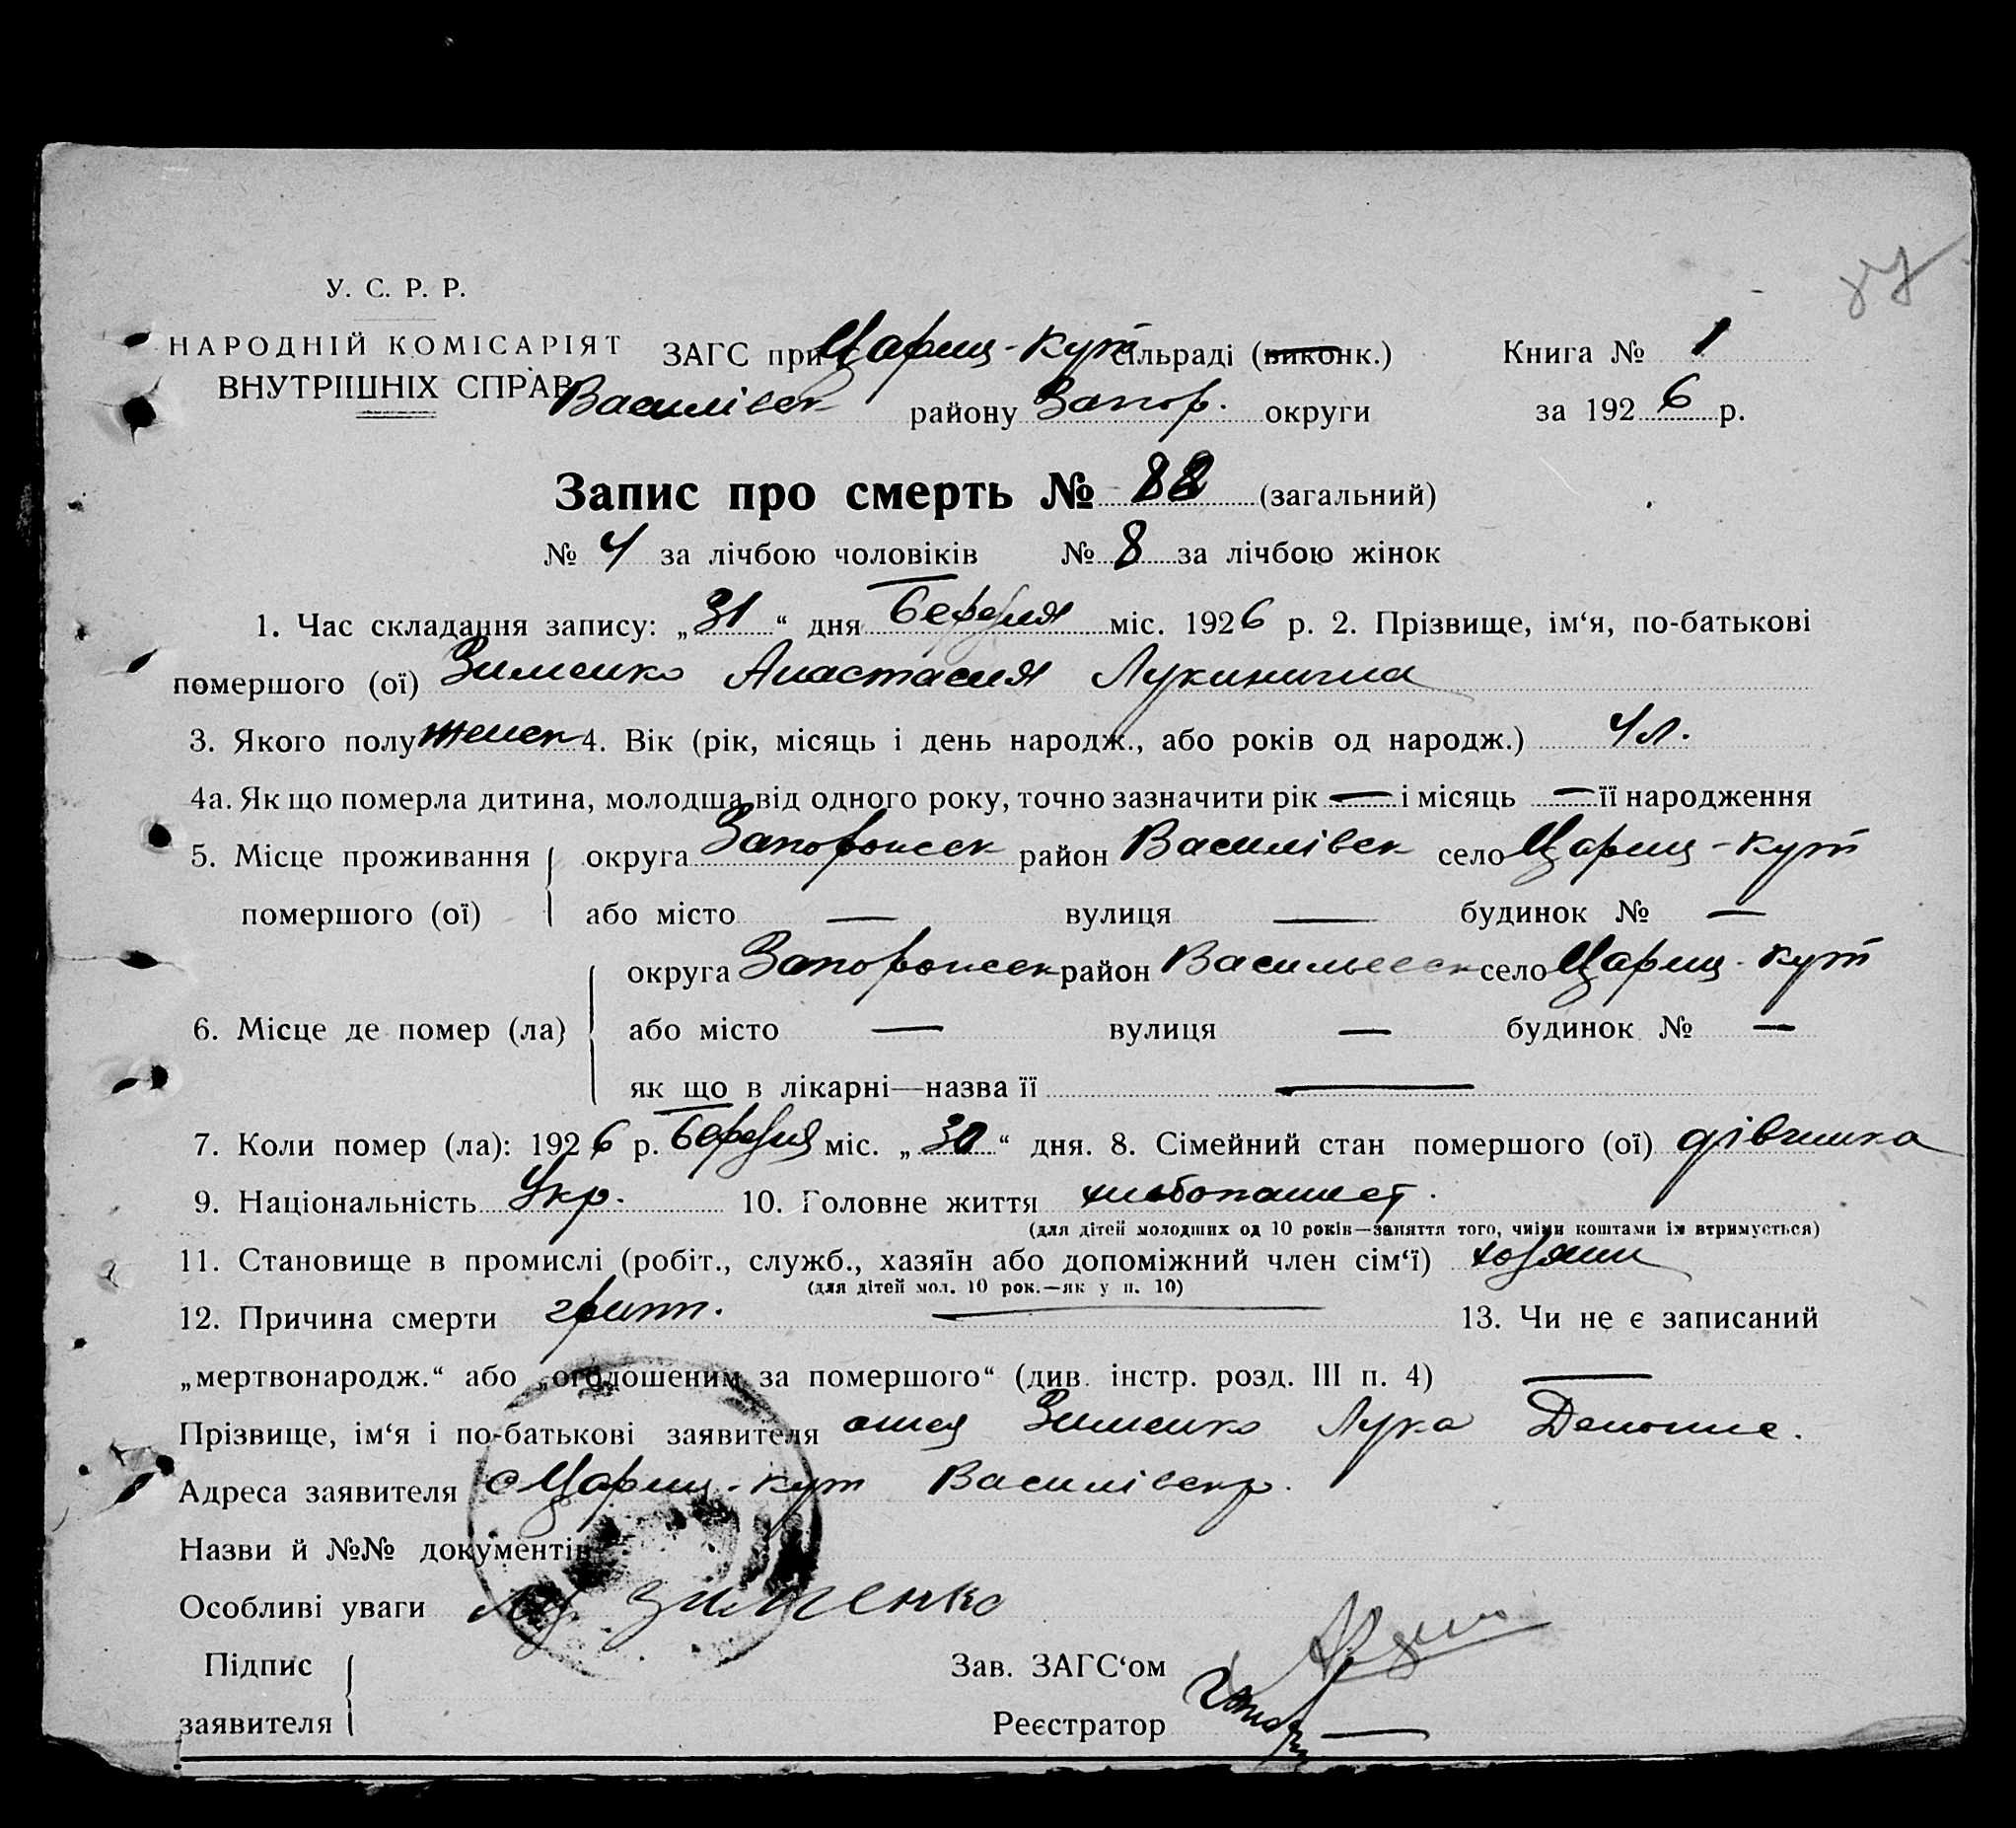 У. С. Р. Р.
НАРОДНІЙ КОМІСАРІЯТ
ВНУТРІШНІХ СПРАВ
ЗАГС при Цариц-Кут сільраді (виконк.) Книга № 1
Василівск району Запор. округи за 1926 р.
Запис про смерть № (загальний)
№ 4 за лічбою чоловіків № 8 за лічбою жінок
1. Час складання запису: „31“ дня березня міс. 1926 р. 2. Прізвище, ім‘я, по-батькові
помершого (ої) Зименко Анастасия Лукинична
3. Якого полу женск 4. Вік (рік, місяць і день народж., або років од народж.) 4 л.
4а. Як що померла дитина, молодша від одного року, точно зазначити рік — і місяць — її народження
5. Місце проживання помершого (ої) округа Запорожск район Василівск село Цариц-Кут
або місто — вулиця — будинок № —
6. Місце де помер (ла) округа Запорожск район Васильевск село Цариц-Кут
або місто — вулиця — будинок № —
як що в лікарні—назва її —
7. Коли помер (ла): 1926 р. березня міс. „30“ дня. 8. Сімейний стан помершого (ої) дівчинка
9. Національність Укр. 10. Головне життя хлібопашест.
(для дітей молодших од 10 років—заняття того, чиїми коштами їх втримується)
11. Становище в промислі (робіт., служб., хазяїн або допоміжний член сім‘ї) хозяин
(для дітей мол. 10 рок.—як у п. 10)
12. Причина смерти грипп. — 13. Чи не є записаний
„мертвонародж.“ або „оголошеним за помершого“ (див. інстр. розд. III п. 4) —
Прізвище, ім‘я і по-батькові заявителя отец Зименко Лука
Адреса заявителя с Цариц-Кут Василівскр.
Назви й №№ документів
Особливі уваги Зименко
Підпис заявителя
Зав. ЗАГС‘ом
Реєстратор